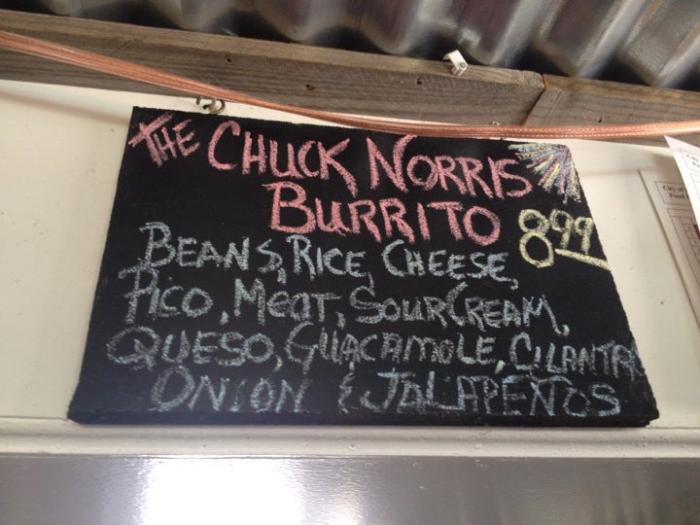 THE CHUCK NORRIS
BURRITO 8.99
BEANS, RICE, CHEESE,
PICO, MEAT, SOUR CREAM,
QUESO, GUACAMOLE, CILANTRO
ONION & JALAPEÑOS